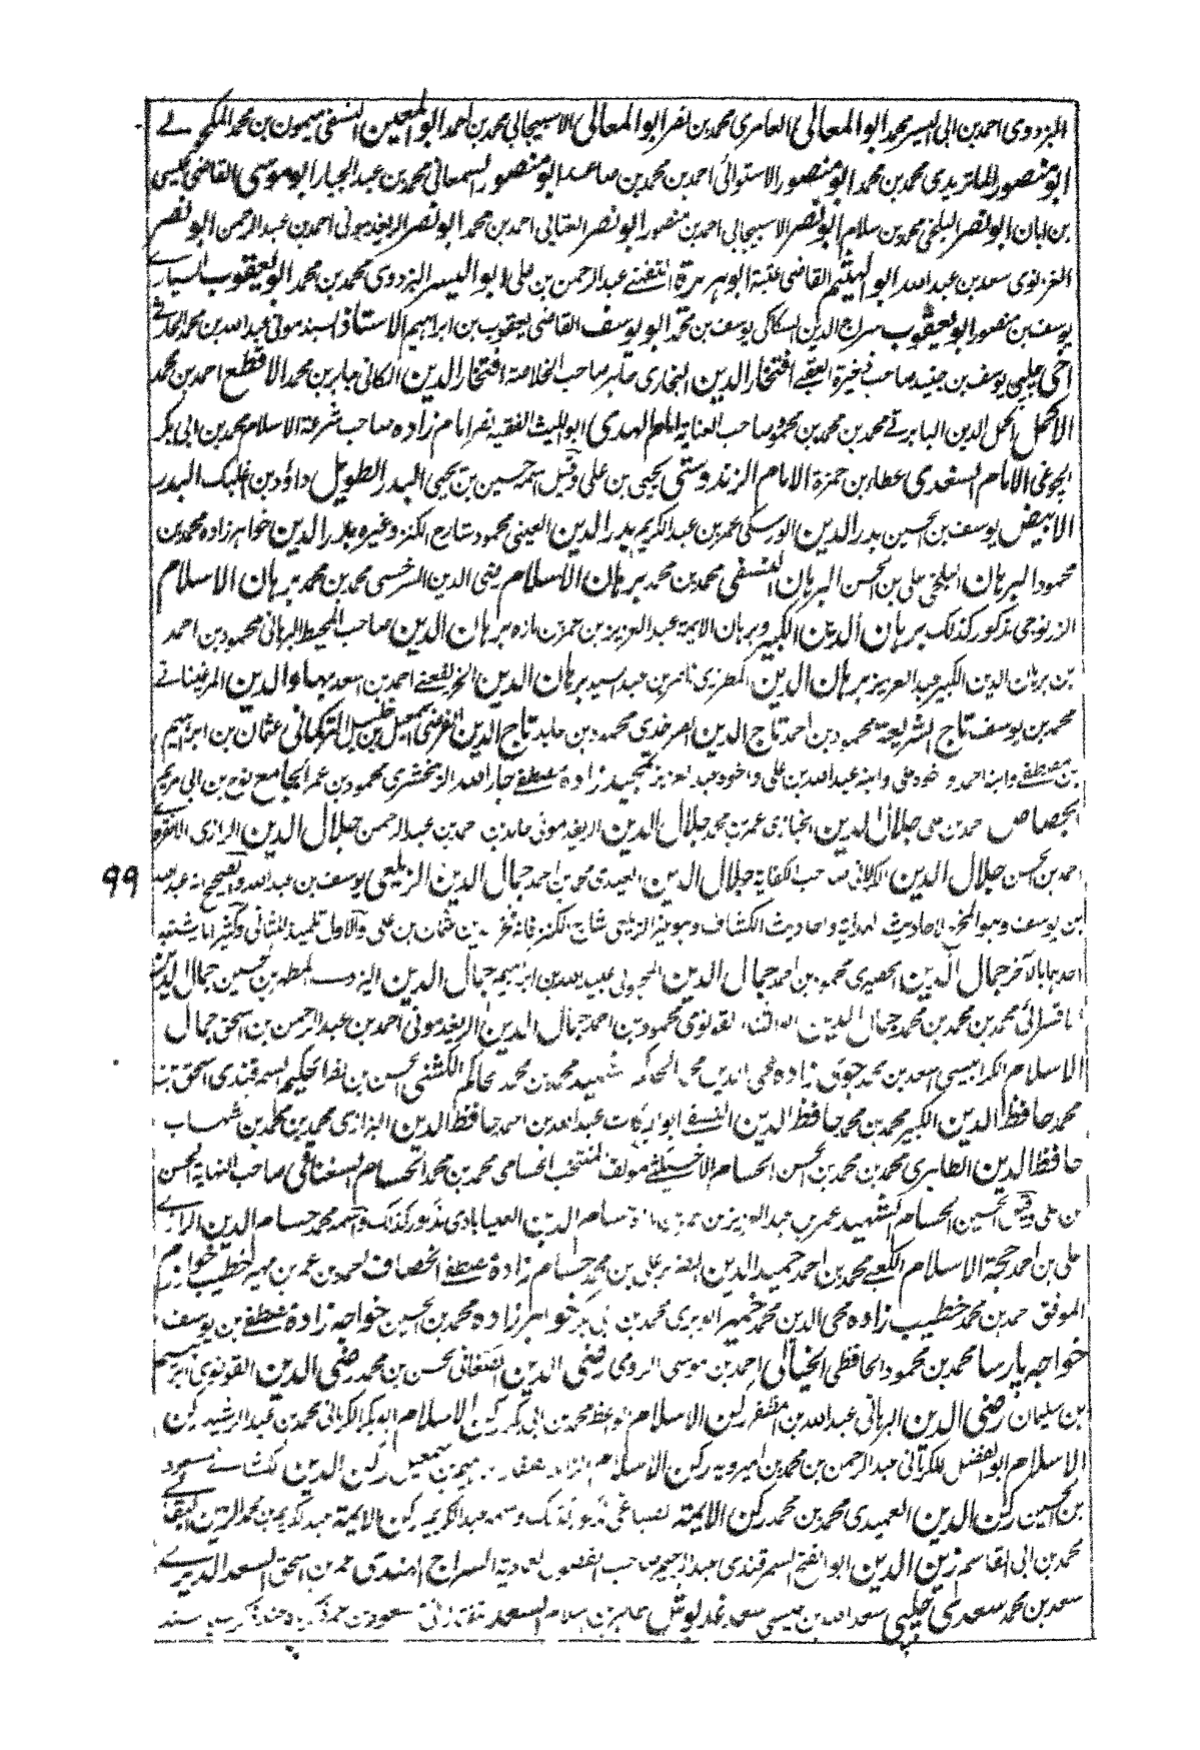 البزدوى احمد بن ابى اليسر محمد ابو المعالى العامرى محمد بن نصر ابو المعالى الاسبيجابى محمد بن احمد ابو المعين النسفى ميمون بن محمد المكحولے
ابو منصور الماتريدى محمد بن محمد ابو منصور الاستوائى احمد بن محمد بن صاعد ابو منصور السمعانى محمد بن عبد الجبار ابو موسى القاضى عيسى
بن ابان ابو نصر البلخى محمد بن سلام ابو نصر الاسبيجابى احمد بن منصور ابو نصر العتابى احمد بن محمد ابو نصر الريغدمونى احمد بن عبد الرحمن ابو نصر
الغزنوى سعد بن عبد الله ابو الهيثم القاضى عتبة ابو هريرة عبد الرحمن بن على ابو اليسر البزدوى محمد بن محمد ابو يعقوب السيارے
يوسف بن منصور ابو يعقوب سراج الدين السكاكى يوسف بن محمد ابو يوسف القاضى يعقوب بن ابراهيم الاستاذ السبذمونى عبد الله بن محمد الحارثى
اخى چلپى يوسف بن جنيد صاحب ذخيرة العقبے افتخار الدين البخارى طاهر صاحب الخلاصة افتخار الدين الكاثى جابر بن محمد الاقطع احمد بن محمد
الاكمل اكمل الدين البابرتے محمد بن محمد بن محمود صاحب العناية امام الهدى ابو الليث الفقيه نصر امام زاده صاحب شرعة الاسلام محمد بن ابى بكر
الجوغى الامام السغدى عطاء بن حمزة الامام الزندوستى يحيى بن على وقيل اسمه حسين بن يحيى البدر الطويل داؤد بن اغلبك البدر
الابيض يوسف بن الحسين بدر الدين الورسكى عمر بن عبد الكريم بدر الدين العينى محمود شارح الكنز وغيره بدر الدين خواهر زاده محمد بن
محمود البرهان البلخى على بن الحسن البرهان النسفى محمد بن محمد برهان الاسلام رضى الدين السرخسى محمد بن محمد برهان الاسلام
الزرنوجى مذكور كذلك برهان الدين الكبير وبرهان الايمة عبد العزيز بن عمر بن مازه برهان الدين صاحب المحيط البرهانى محمود بن احمد
بن برهان الدين الكبير عبد العزيز برهان الدين المطرزى ناصر بن عبد السيد برهان الدين احمد بن اسعد بهاء الدين المرغينانے
محمد بن يوسف تاج الشريعة محمود بن احمد تاج الدين محمود بن عابد تاج الدين التركمانى عثمان بن ابراهيم
بن مصطفے وابنه احمد وابنه عبد الله بن على واخوه عبد العزيز تمجيد زاده مصطفے جار الله الزمخشرى محمود بن عمر الجامع نوح بن ابى مريم
الجصاص احمد بن على جلال الدين الخبازى عمر بن محمد جلال الدين الريغدمونى حامد بن محمد بن عبد الرحمن جلال الدين الرازى
احمد بن الحسن جلال الدين الكرلانى صاحب الكفاية جلال الدين العيدى محمد بن احمد جمال الدين الزيلعى يوسف بن عبد الله والصحيح انه عبد الله
٩٩
بن يوسف وهو المخرج لاحاديث الهداية واحاديث الكشاف وهو غير الزيلعى شارح الكنز فانه فخر الدين عثمان بن على والاول تلميذ للثانى وكثيرا ما يشتبه
احدهما بالآخر جمال الدين الحصيرى محمود بن احمد جمال الدين المحبوبى عبيد الله بن ابراهيم جمال الدين اليزدى المطهر بن حسين جمال الدين
الاقسرائى محمد بن محمد بن محمد جمال الدين القونوى محمود بن احمد جمال الدين الريغدمونى احمد بن عبد الرحمن بن اسحق جمال
الاسلام الكرابيسى اسعد بن محمد جوى زاده محى الدين محمد الحاكم الشهيد محمد بن محمد الحاكم الكشنى الحسن بن نصر الحكيم السمرقندى اسحق بن
محمد حافظ الدين الكبير محمد بن محمد حافظ الدين النسفى ابو البركات عبد الله بن احمد حافظ الدين البزازى محمد بن محمد بن شهاب
حافظ الدين الطاهرى محمد بن محمد بن الحسن الحسام الاخسيكثى مؤلف المنتخب الحسامى محمد بن محمد الحسام السغناقى صاحب النهاية الحسن
بن على وقيل الحسين الحسام الشهيد عمر بن عبد العزيز بن عمر بن مازه حسام الدين العليابادى مذكور كذلك واسمه محمد حسام الدين الرازے
على بن احمد حجة الاسلام الكعبے محمد بن احمد حميد الدين الضرير على بن محمد حسام زاده مصطفے الخصاف احمد بن عمر بن مهير خطيب خوارزم
الموفق احمد بن محمد خطيب زاده محى الدين محمد خمير الوبرى محمد بن ابى بكر خواهر زاده محمد بن الحسين خواجه زاده مصطفے بن يوسف
خواجه پارسا محمد بن محمود الحافظى الخيالى احمد بن موسى الرومى رضى الدين الصغانى حسن بن محمد رضى الدين القونوى ابراهيم
بن سليمان رضى الدين البرهانى عبد الله بن المظفر ركن الاسلام الواعظ محمد بن ابى بكر ركن الاسلام ابو بكر الكرمانى محمد بن عبد الرشيد ركن
الاسلام ابو الفضل الكرمانى عبد الرحمن بن محمد بن اميرويه ركن الاسلام الزاهد الصفار ابراهيم بن اسمعيل ركن الدين مسعود
بن الحسين ركن الدين العميدى محمد بن محمد ركن الايمة الصباغى مذكور كذلك واسمه عبد الكريم ركن الايمة عبد الكريم بن محمد الزين
محمد بن ابى القاسم زين الدين ابو الفتح السمرقندى عبد الرحيم صاحب الفصول العمادية السراج الهندى عمر بن اسحق السعد الديرے
سعد بن محمد سعدى چلپى سعد الله بن عيسى السعد